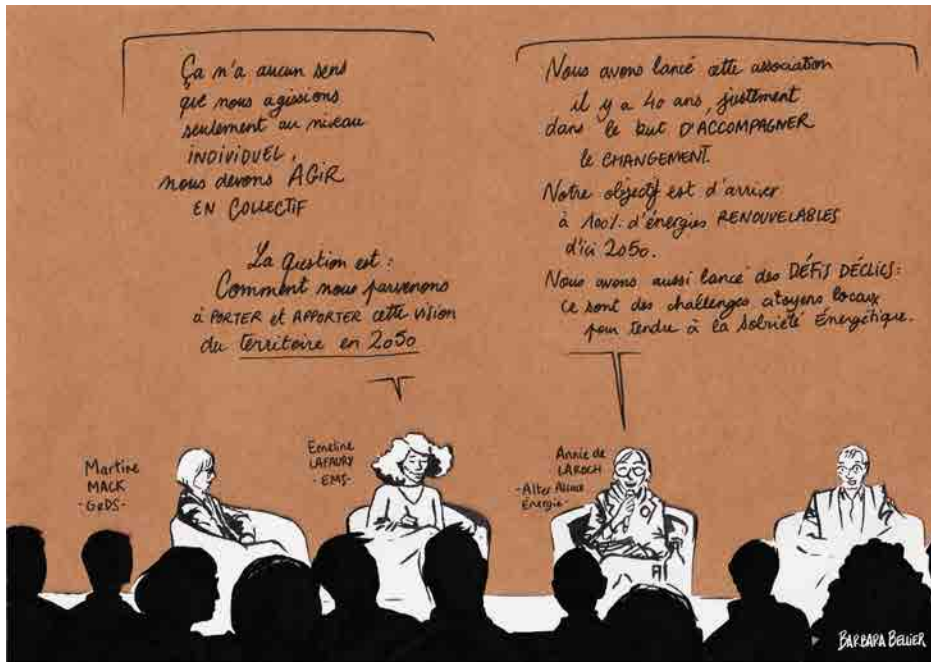 Ça n'a aucun sens
que nous agissions
seulement au niveau
INDIVIDUEL,
nous devons AGIR
EN COLLECTIF
La question est :
Comment nous parvenons
à PORTER et APPORTER cette vision
du territoire en 2050
Nous avons lancé cette association
il y a 40 ans, justement
dans le but D'ACCOMPAGNER
le CHANGEMENT.
Notre objectif est d'arriver
à 100% d'énergies RENOUVELABLES
d'ici 2050.
Nous avons aussi lancé des DÉFIS DÉCLICS :
ce sont des challenges citoyens locaux
pour tendre à la Sobriété Énergétique.
Martine
MACK
-GDS-
Emeline
LAFAURY
-EMS-
Annie de
LAROCH
-Alter Alsace
Énergie-
BARBARA BELLIER